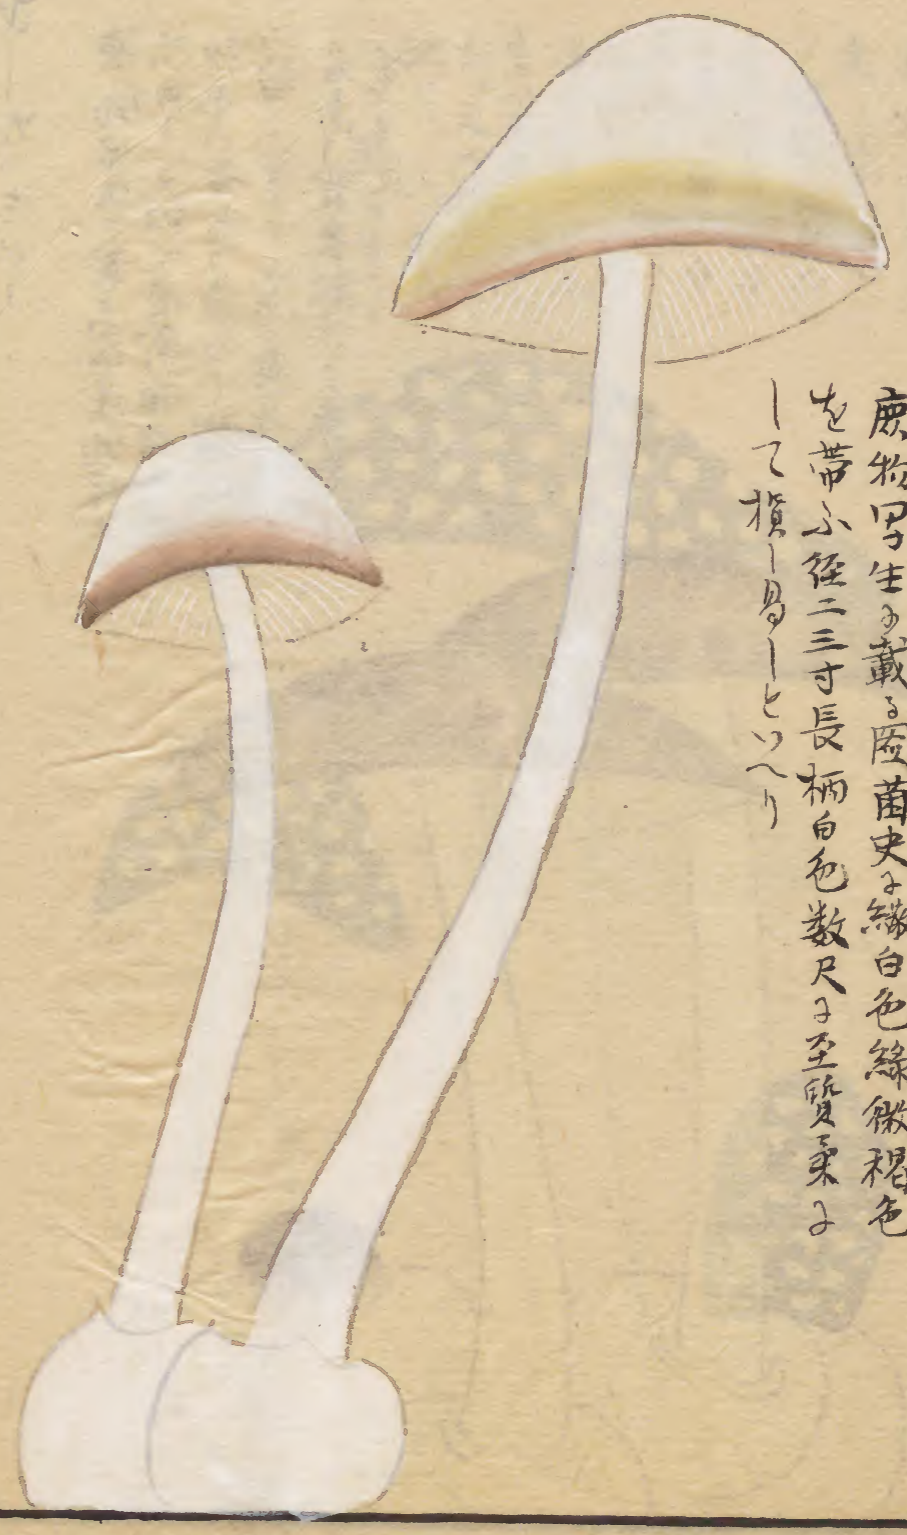 廃物ヨリ生ス載る處菌史ニ繖白色緣微褐色
を帯ふ徑二三寸長柄白色数尺ニ至質柔ニ
して損し易しといへり